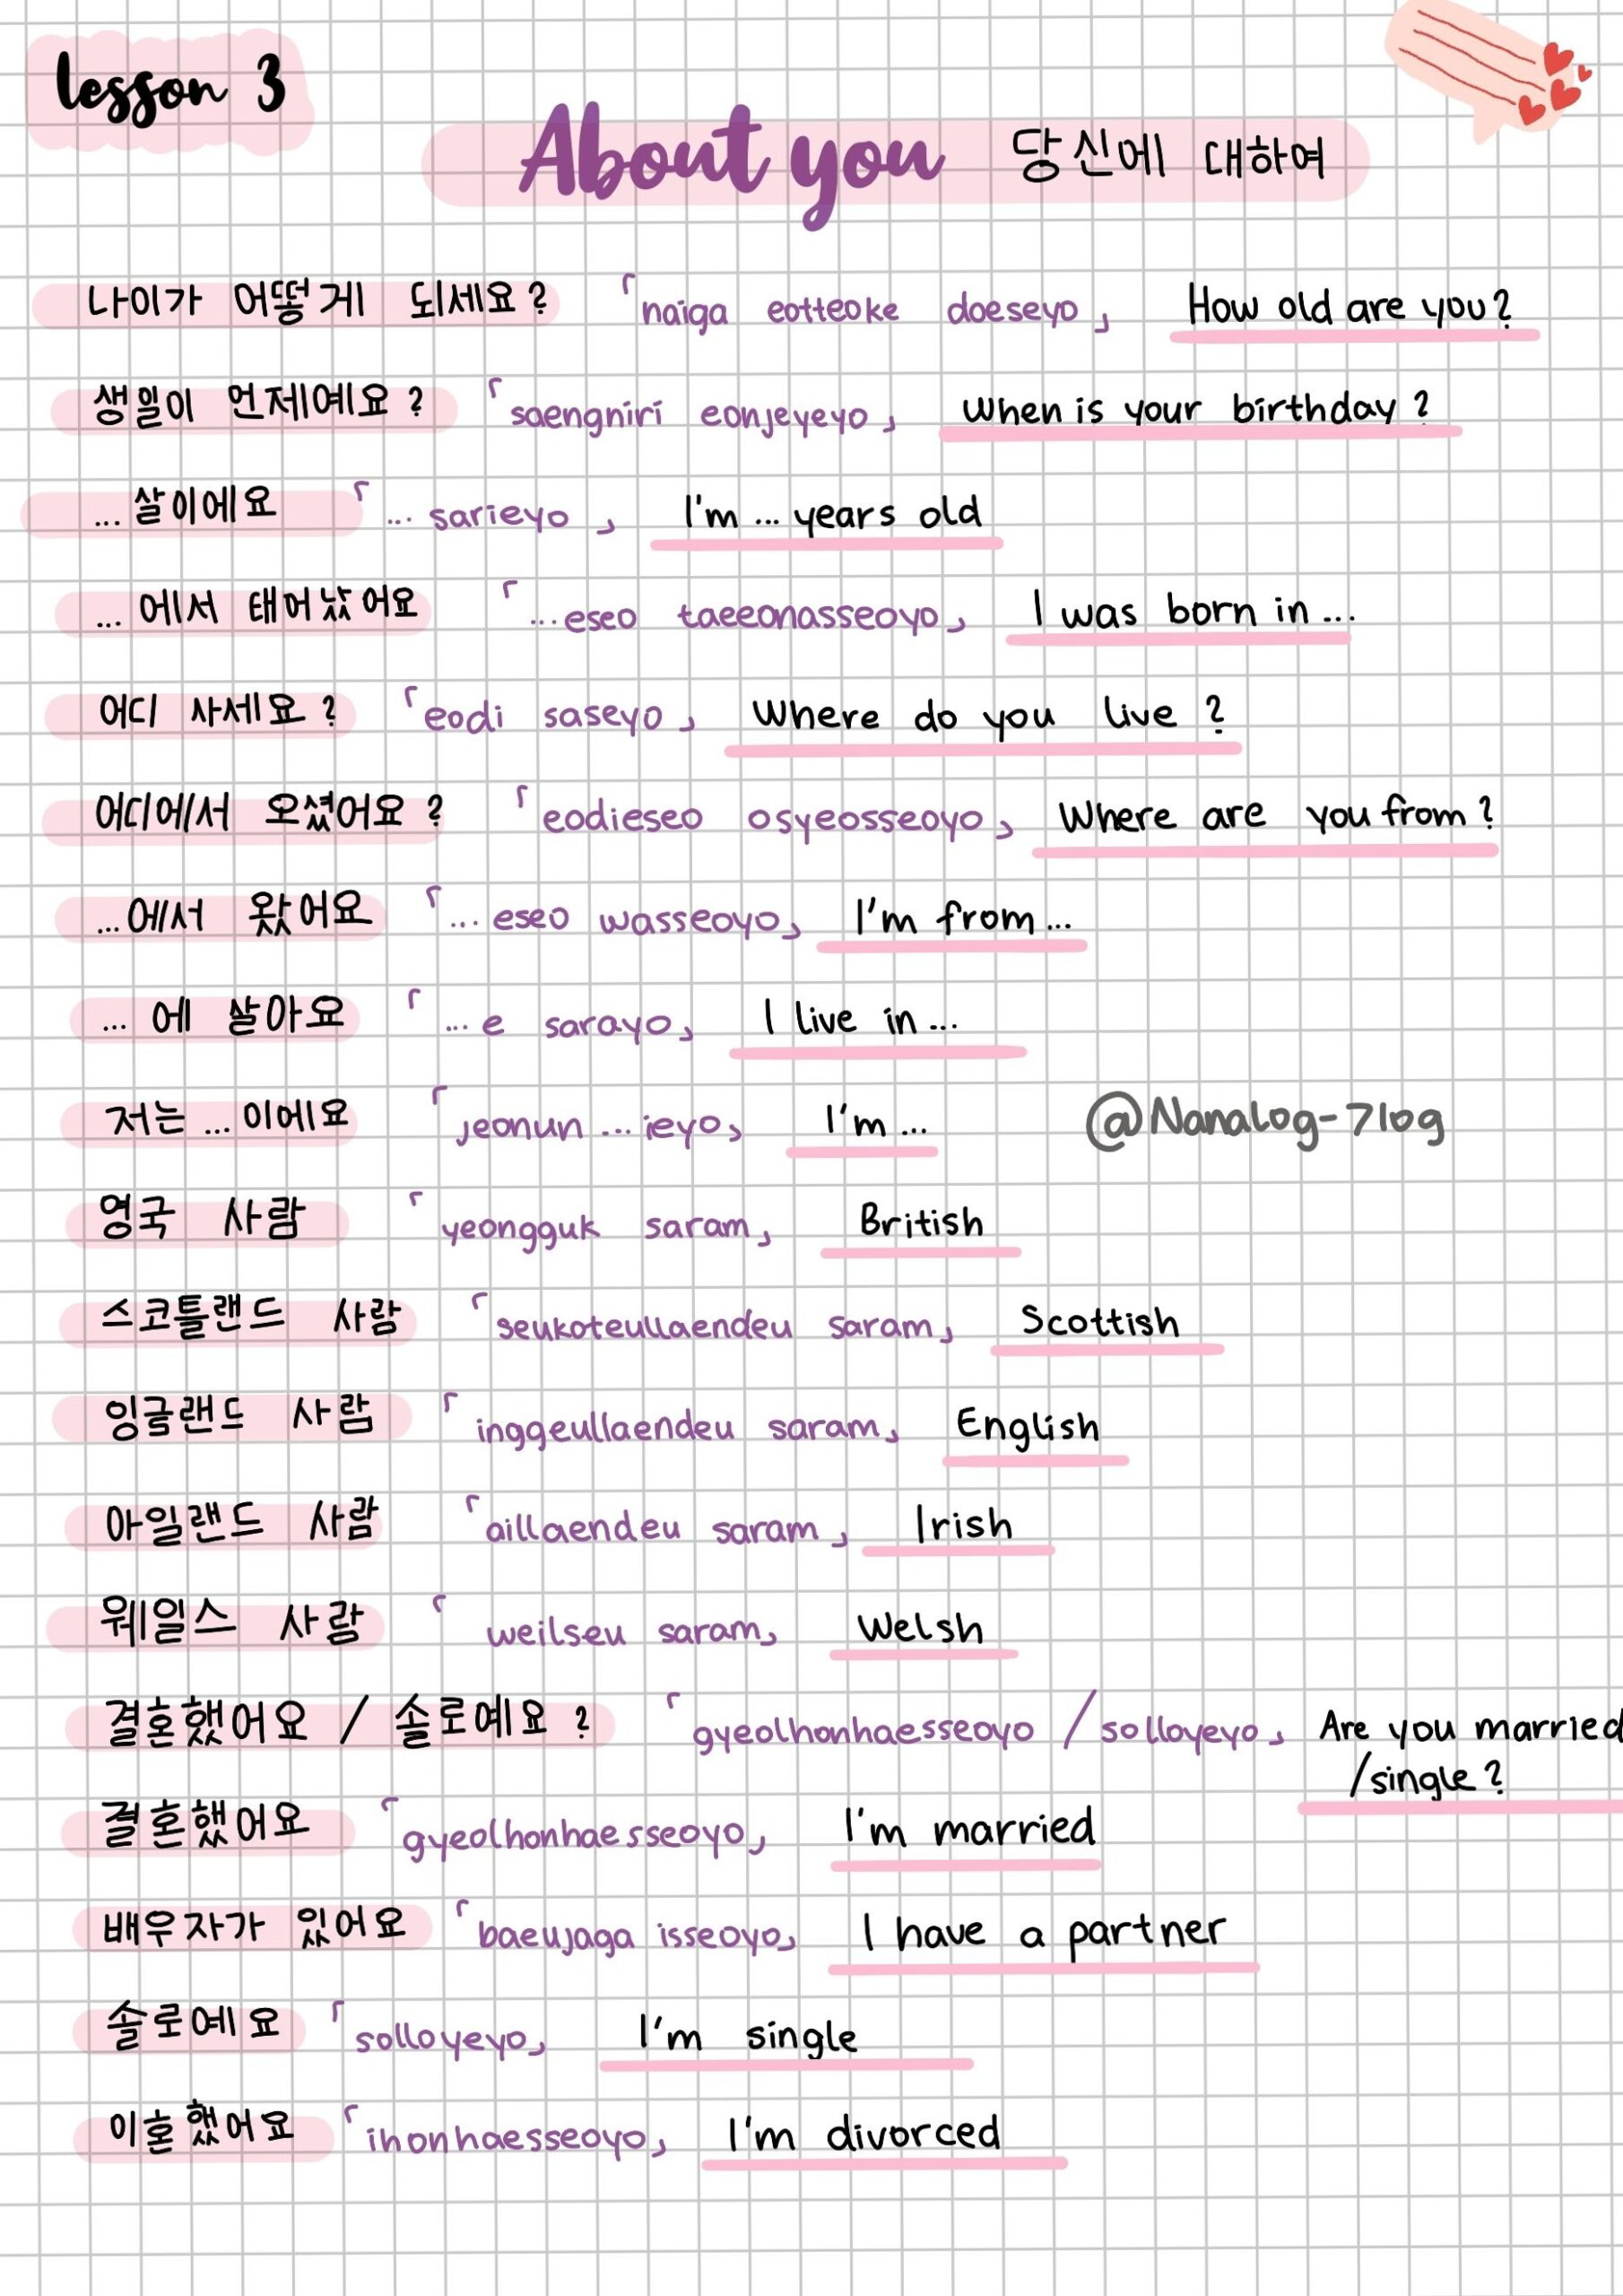 lesson 3
About you 당신에 대하여
나이가 어떻게 되세요? 「naiga eotteoke doeseyo」 How old are you?
생일이 언제예요? 「saengniri eonjeyeyo」 When is your birthday?
...살이에요 「... sarieyo」 I'm ... years old
...에서 태어났어요 「...eseo taeeonasseoyo」 I was born in...
어디 사세요? 「eodi saseyo」 Where do you live?
어디에서 오셨어요? 「eodieseo osyeosseoyo」 Where are you from?
...에서 왔어요 「... eseo wasseoyo」 I'm from...
... 에 살아요 「... e sarayo」 I live in...
저는 ... 이에요 「jeonun ... ieyo」 I'm ... @Nanalog-7log
영국 사람 「yeongguk saram」 British
스코틀랜드 사람 「seukoteullaendeu saram」 Scottish
잉글랜드 사람 「inggeullaendeu saram」 English
아일랜드 사람 「aillaendeu saram」 Irish
웨일스 사람 「weilseu saram」 Welsh
결혼했어요 / 솔로예요? 「gyeolhonhaesseoyo / solloyeyo」 Are you married
/single?
결혼했어요 「gyeolhonhaesseoyo」 I'm married
배우자가 있어요 「baeujaga isseoyo」 I have a partner
솔로예요 「solloyeyo」 I'm single
이혼했어요 「ihonhaesseoyo」 I'm divorced